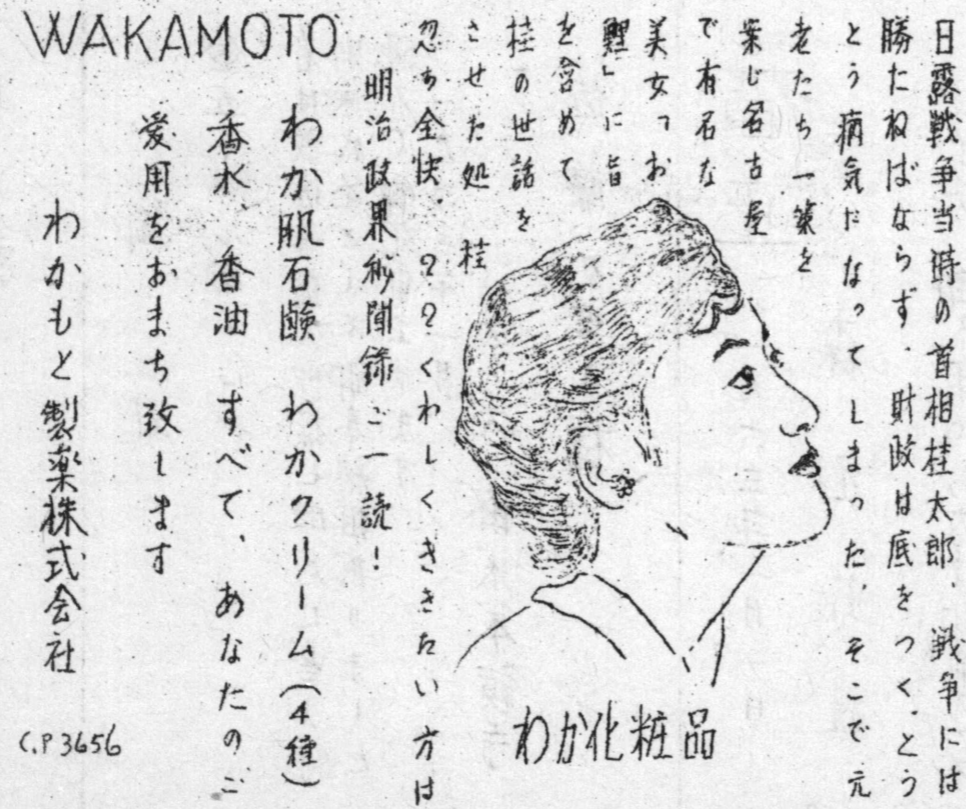 日露戦争当時の首相桂太郎 戦争には
勝たねばならず、財政は底をつく、とう
とう病気になってしまった、そこで元
老たち一策を
案じ名古屋
で有名な
美女「お
鯉」に旨
を含めて
桂の世話を
させた処 桂
忽ち全快、??くわしくききたい方は
明治政界秘聞録ご一読!
わか化粧品
わか肌石鹸 わかクリーム(4種)
香水、香油 すべて、あなたのご
愛用をおまち致します
わかもと製薬株式会社
WAKAMOTO
C.P 3656